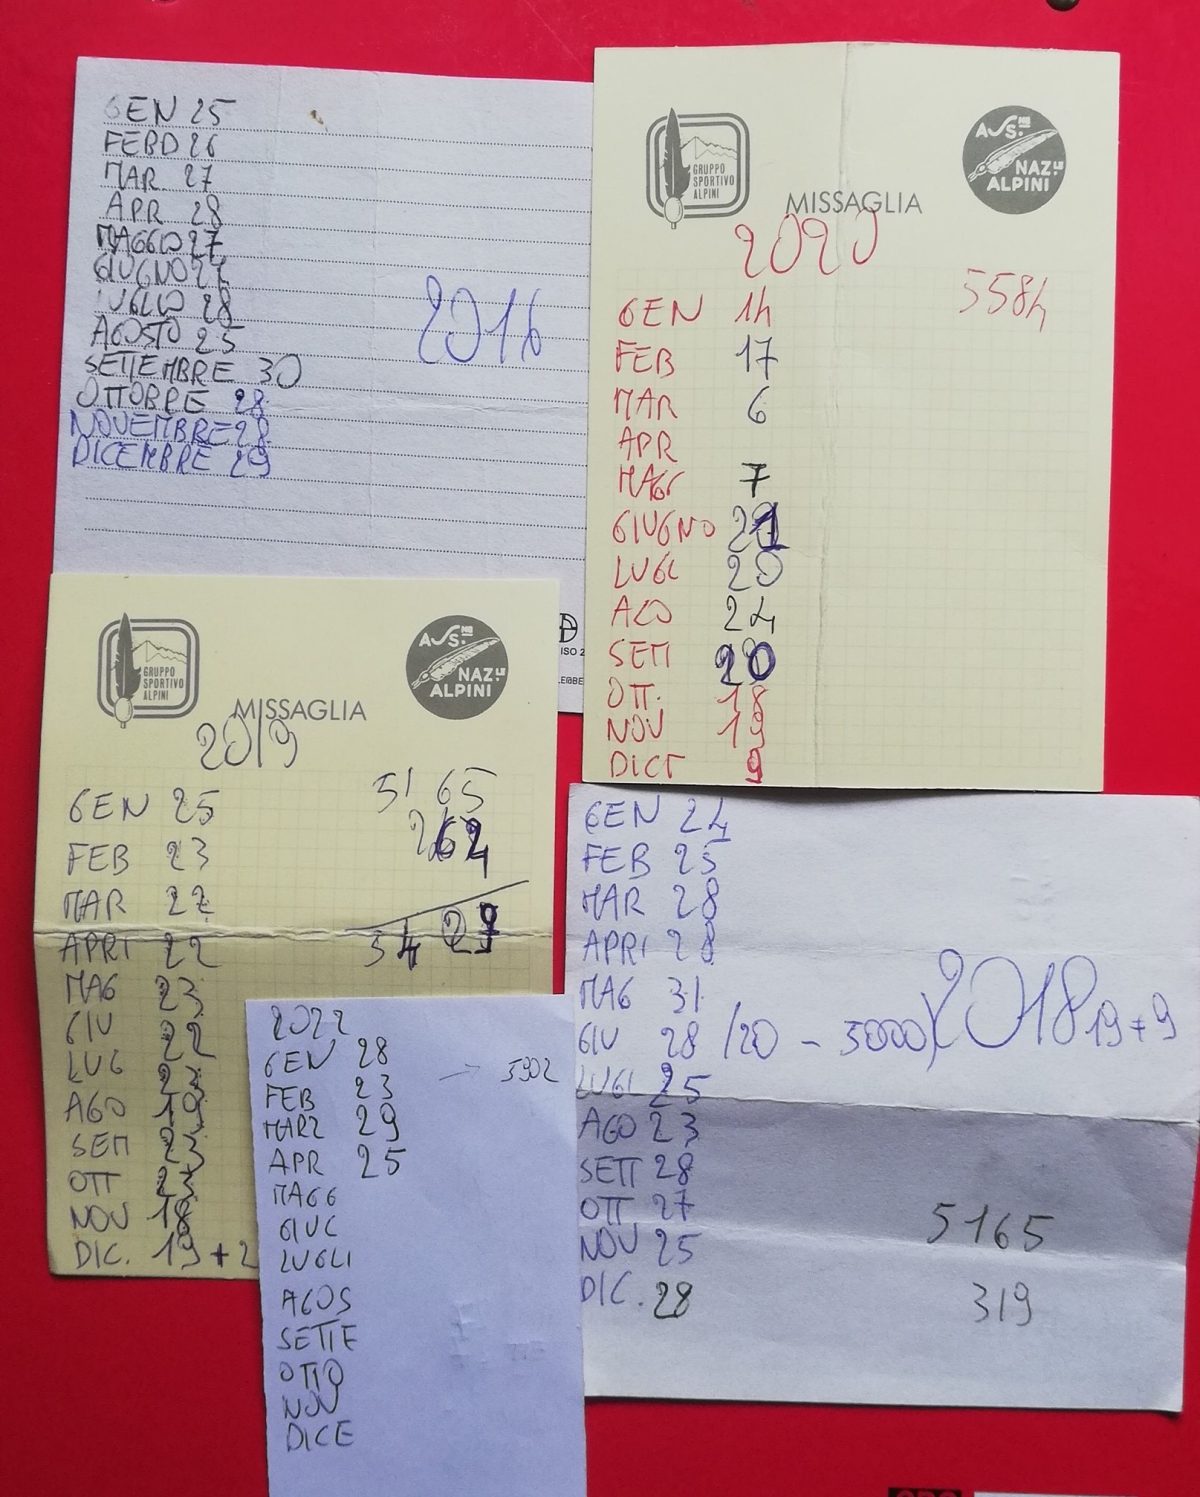 GEN 25
FEBO 26
MAR 27
APR 28
MAGGIO 27
GIUGNO
LUGLIO 28
AGOSTO 25
SETTEMBRE 30
OTTOBRE 28
NOVEMBRE 28
DICEMBRE 29
2016
GRUPPO
SPORTIVO
ALPINI
ASS.NE
NAZ.LE
ALPINI
MISSAGLIA
2020
5584
GEN 14
FEB 17
MAR 6
APR
MAGG 7
GIUGNO 21
LUGL 20
AGO 24
SETT 20
OTT. 18
NOV 19
DICE 9
ISO 2
GRUPPO
SPORTIVO
ALPINI
ASS.NE
NAZ.LE
ALPINI
MISSAGLIA
2019
5165
262
5427
GEN 25
FEB 23
MAR 22
APRI 22
MAG 23
GIU 22
LUG
AGO 19
SETT
OTT
NOV 18
DIC. 19+2
2022
5902
GEN 28
FEB 23
MARZ 29
APR 25
MAGG
GIUG
LUGLI
AGOS
SETTE
OTTO
NOV
DICE
GEN 24
FEB 25
MAR 28
APRI 28
MAG 31
GIU 28 /20 - 5000) 2018 19+9
LUGL 25
AGO 23
SETT 28
OTT 27
NOV 25
DIC. 28
5165
319